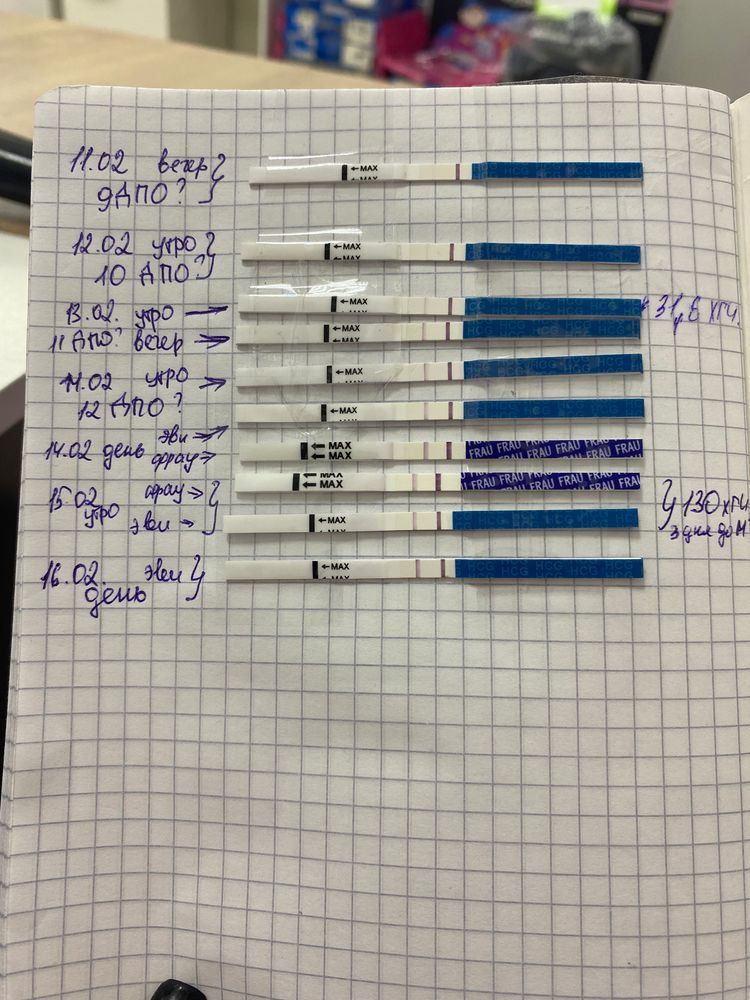 11.02 вечер
9 ДПО?
←MAX
12.02 утро
10 ДПО?
←MAX
13.02. утро →
←MAX
31,6 ХГЧ.
11 ДПО? вечер →
←MAX
14.02 утро →
←MAX
12 ДПО?
←MAX
14.02 день эви →
фрау →
←MAX
←MAX
FRAU FRAU FRAU FRAU
15.02 фрау →
утро эви →
←MAX
←MAX
FRAU FRAU FRAU FRAU
130 ХГЧ
3 дня до М
←MAX
16.02. эви
день
←MAX
HCG HCG HCG HCG